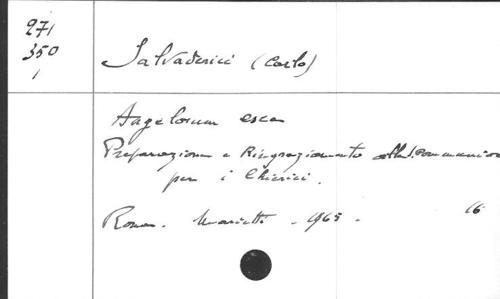 271
350
1
Salvaderici (Carlo)
Angelorum esca
Preparazione e Ringraziamento alla S. Communion
per i Chierici.
Roma. Marietti - 1965 - 16